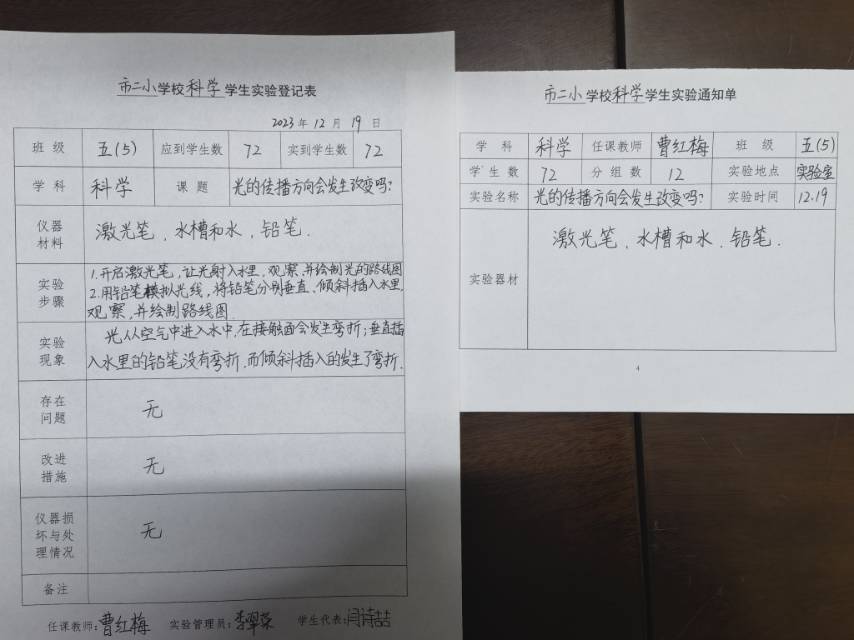 市二小学校科学学生实验登记表
2023年12月19日
班级 五(5) 应到学生数 72 实到学生数 72
学科 科学 课题 光的传播方向会发生改变吗?
仪器材料 激光笔、水槽和水、铅笔.
实验步骤 1.开启激光笔,让光射入水里,观察,并绘制光的路线图
2.用铅笔模拟光线,将铅笔分别垂直、倾斜插入水里,
观察,并绘制路线图.
实验现象 光从空气中进入水中,在接触面会发生弯折;垂直插
入水里的铅笔没有弯折.而倾斜插入的发生了弯折.
存在问题 无
改进措施 无
仪器损坏与处理情况 无
备注
任课教师:曹红梅 实验管理员:李翠荣 学生代表:闫诗喆
市二小学校科学学生实验通知单
学科 科学 任课教师 曹红梅 班级 五(5)
学生数 72 分组数 12 实验地点 实验室
实验名称 光的传播方向会发生改变吗? 实验时间 12.19
实验器材 激光笔、水槽和水、铅笔.
4